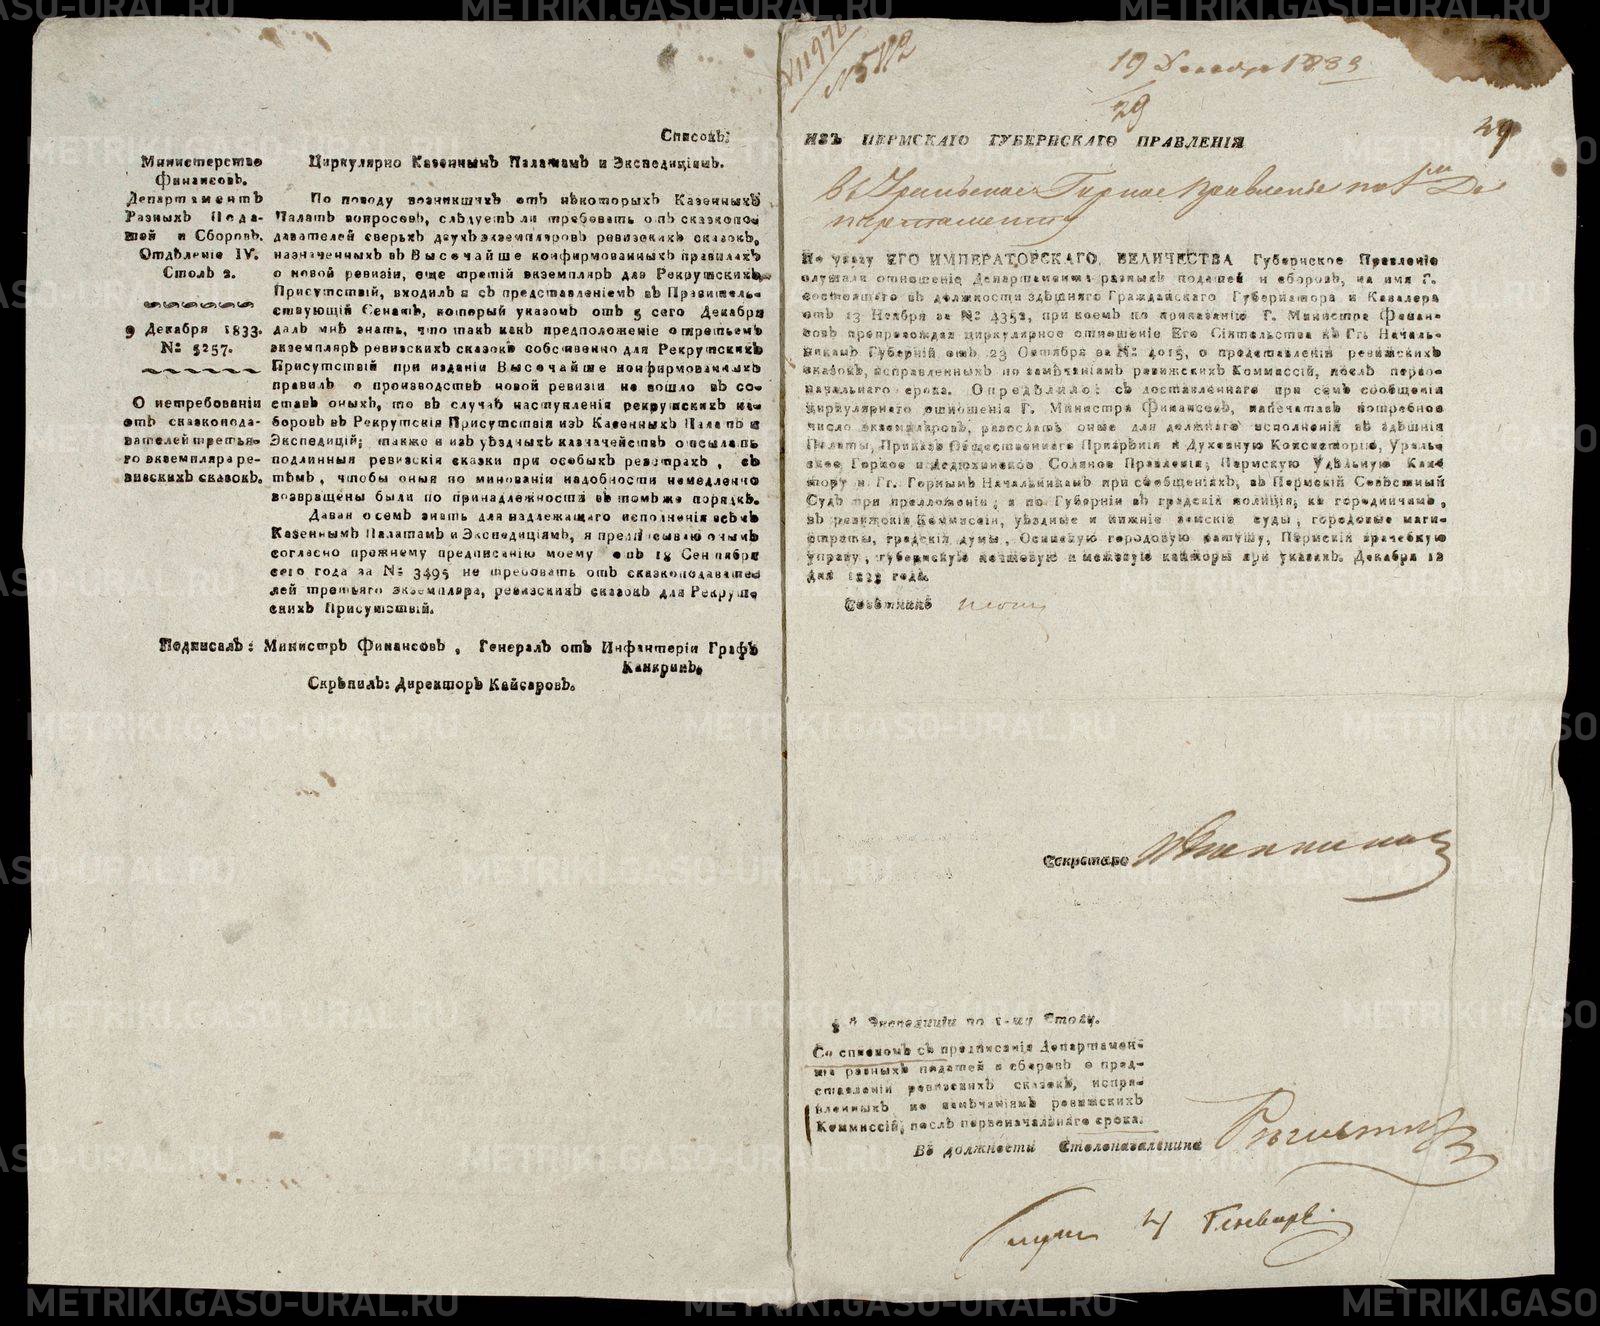 Списокъ.
Министерство
Финансовъ.
Департаментъ
Разныхъ Пода-
тей и Сборовъ.
Отдѣленіе IV.
Столъ 2.
9 Декабря 1833.
№ 5257.
О нетребованіи
отъ сказкопода-
вателей третья-
го экземпляра ре-
визскихъ сказокъ.
Циркулярно Казеннымъ Палатамъ и Экспедиціямъ.
По поводу возникшихъ отъ нѣкоторыхъ Казенныхъ
Палатъ вопросовъ, слѣдуетъ ли требовать отъ сказкопо-
давателей сверхъ двухъ экземпляровъ ревизскихъ сказокъ,
назначенныхъ въ Высочайше конфирмованныхъ правилахъ
о новой ревизіи, еще третій экземпляръ для Рекрутскихъ
Присутствій, входилъ я съ представленіемъ въ Правитель-
ствующій Сенатъ, который указомъ отъ 5 сего Декабря
далъ мнѣ знать, что такъ какъ предположеніе о третьемъ
экземплярѣ ревизскихъ сказокъ собственно для Рекрутскихъ
Присутствій при изданіи Высочайше конфирмованныхъ
правилъ о производствѣ новой ревизіи не вошло въ со-
ставъ оныхъ, то въ случаѣ наступленія рекрутскихъ на-
боровъ въ Рекрутскія Присутствія изъ Казенныхъ Палатъ и
Экспедицій; также и изъ уѣздныхъ казначействъ отсылать
подлинныя ревизскія сказки при особыхъ реестрахъ, съ
тѣмъ, чтобы оныя по минованіи надобности немедленно
возвращены были по принадлежности въ томъ же порядкѣ.
Давая о семъ знать для надлежащаго исполненія всѣмъ
Казеннымъ Палатамъ и Экспедиціямъ, я предписываю онымъ
согласно прежнему предписанію моему отъ 18 Сентября
сего года за № 3495 не требовать отъ сказкоподавате-
лей третьяго экземпляра, ревизскихъ сказокъ для Рекрут-
скихъ Присутствій.
Подписалъ: Министръ Финансовъ, Генералъ отъ Инфантеріи Графъ
Канкринъ.
Скрѣпилъ: Директоръ Кайсаровъ.
№ 5112
19 Декабр 1833
29
29
ИЗЪ ПЕРМСКАГО ГУБЕРНСКАГО ПРАВЛЕНІЯ
въ Уральское Горное Правленіе по 1му Де
партаменту
По указу ЕГО ИМПЕРАТОРСКАГО ВЕЛИЧЕСТВА Губернское Правленіе
слушали отношеніе Департамента разныхъ податей и сборовъ, на имя Г.
состоящаго въ должности здѣшняго Гражданскаго Губернатора и Кавалера
отъ 13 Ноября за № 4352, при коемъ по приказанію Г. Министра Финан-
совъ препровождая циркулярное отношеніе Его Сіятельства къ Гг. Началь-
никамъ Губерній отъ 23 Октября за № 4015, о представленіи ревижскихъ
сказокъ, исправленныхъ по замѣчаніямъ ревижскихъ Коммиссій, послѣ перво-
начальнаго срока. Опредѣлило: съ доставленнаго при семъ сообщеніи
циркулярнаго отношенія Г. Министра Финансовъ, напечатавъ потребное
число экземпляровъ, разослать оные для должнаго исполненія въ здѣшнія
Палаты, Приказъ Общественнаго Призрѣнія и Духовную Консисторію, Ураль-
ское Горное и Дедюхинское Соляное Правленія, Пермскую Удѣльную Кон-
тору и Гг. Горнымъ Начальникамъ при сообщеніяхъ, въ Пермскій Совѣстный
Судъ при предложеніи, а по Губерніи въ градскія полиціи, къ городничимъ,
въ ревижскія Коммиссіи, уѣздные и нижніе земскіе суды, городовые маги-
страты, градскія думы, Осинскую городовую ратушу, Пермскія врачебную
управу, губернскую почтовую и межевую конторы при указахъ. Декабря 12
дня 1833 года.
Совѣтникъ
Секретарь
Экспедиціи по 1-му Столу.
Со спискомъ съ предписанія Департамен-
та разныхъ податей и сборовъ о пред-
ставленіи ревизскихъ сказокъ, испра-
вленныхъ по замѣчаніямъ ревижскихъ
Коммиссій, послѣ первоначальнаго срока.
Въ должности Столоначальника
4 Генваря
METRIKI.GASO-URAL.RU